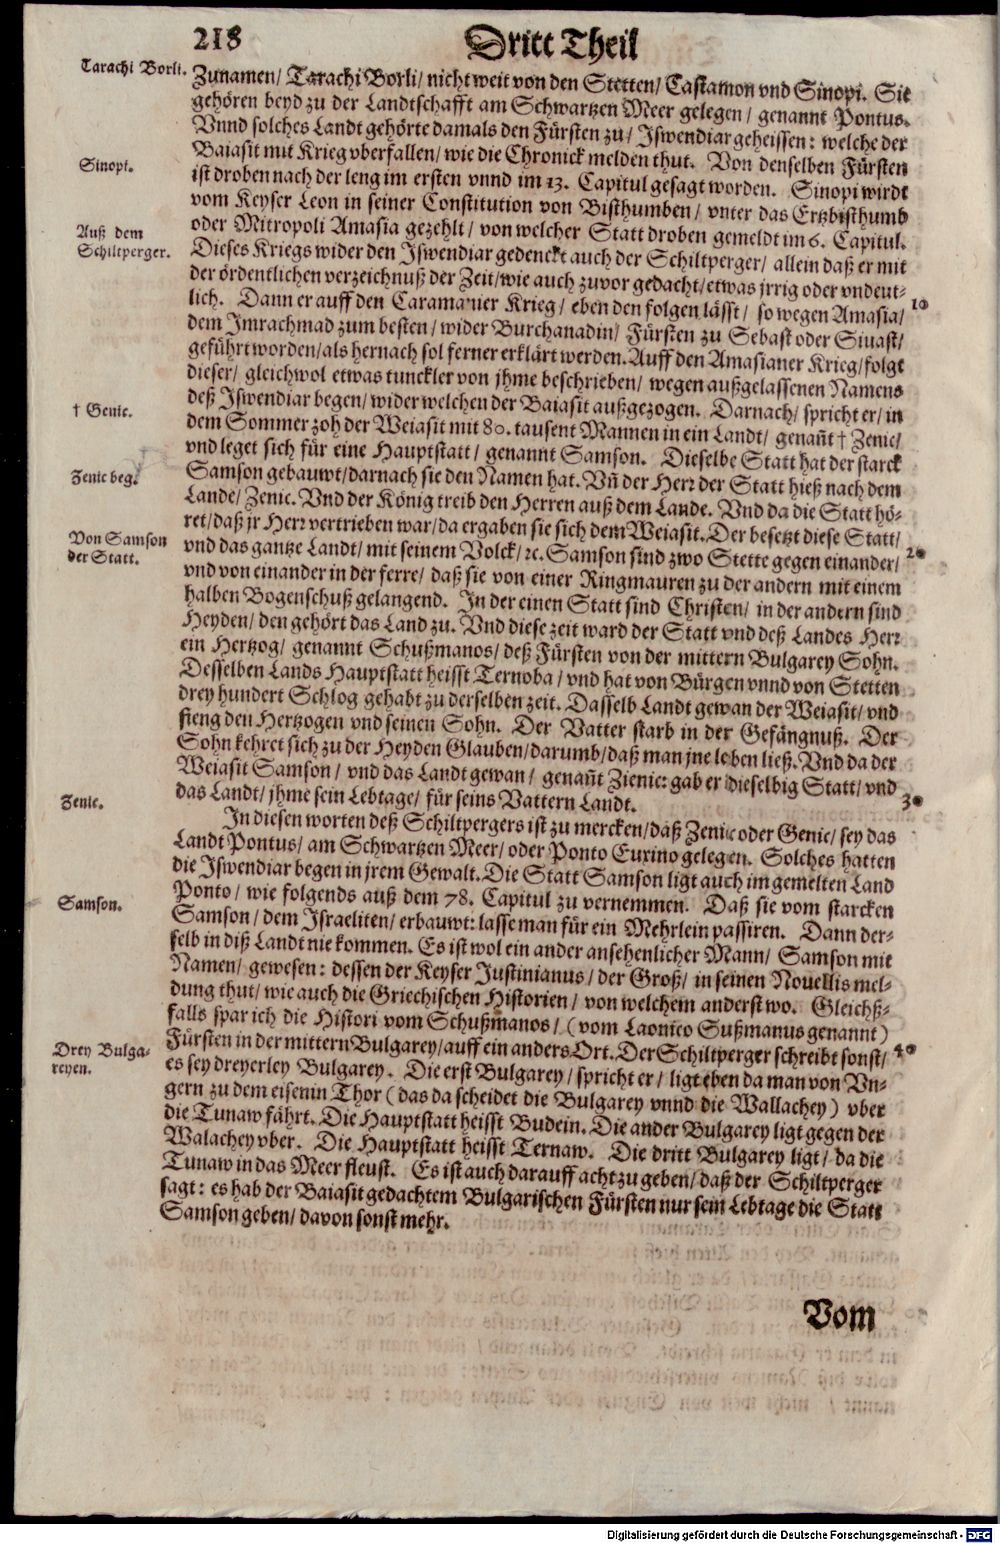 218
Dritt Theil
Tarachi Borli.
Zunamen/ Tarachi Borli/ nicht weit von den Stetten/ Castamon vnd Sinopi. Sie
gehören beyd zu der Landtschafft am Schwartzen Meer gelegen/ genannt Pontus.
Vnnd solches Landt gehörte damals den Fürsten zu/ Iswendiar geheissen: welche der
Baiasit mit Krieg vberfallen/ wie die Chronick melden thut. Von denselben Fürsten
Sinopi.
ist droben nach der leng im ersten vnnd im 13. Capitul gesagt worden. Sinopi wirdt
vom Keyser Leon in seiner Constitution von Bisthumben/ vnter das Ertzbisthumb
oder Mitropoli Amasia gezehlt/ von welcher Statt droben gemeldt im 6. Capitul.
Auß dem
Schiltperger.
Dieses Kriegs wider den Iswendiar gedenckt auch der Schiltperger/ allein daß er mit
der ördentlichen verzeichnuß der Zeit/ wie auch zuvor gedacht/ etwas jrrig oder vndeut-
lich. Dann er auff den Caramaner Krieg/ eben den folgen lässt/ so wegen Amasia/
10
dem Imrachmad zum besten/ wider Burchanadin/ Fürsten zu Sebast oder Siuast/
geführt worden/ als hernach sol ferner erklärt werden. Auff den Amasianer Krieg/ folgt
dieser/ gleichwol etwas tunckler von jhme beschrieben/ wegen außgelassenen Namens
deß Iswendiar begen/ wider welchen der Baiasit außgezogen. Darnach/ spricht er/ in
† Genie.
dem Sommer zoh der Weiasit mit 80. tausent Mannen in ein Landt/ genañt † Zenie/
vnd leget sich für eine Hauptstatt/ genannt Samson. Dieselbe Statt hat der starck
Zenic beg.
Samson gebauwt/ darnach sie den Namen hat. Vñ der Herr der Statt hieß nach dem
Lande/ Zenic. Vnd der König treib den Herren auß dem Lande. Vnd da die Statt hö-
ret/ daß jr Herr vertrieben war/ da ergaben sie sich dem Weiasit. Der besetzt diese Statt/
Von Samson
der Statt.
vnd das gantze Landt/ mit seinem Volck/ ꝛc. Samson sind zwo Stette gegen einander/
20
vnd von einander in der ferre/ daß sie von einer Ringmauren zu der andern mit einem
halben Bogenschuß gelangend. In der einen Statt sind Christen/ in der andern sind
Heyden/ den gehört das Land zu. Vnd diese zeit ward der Statt vnd deß Landes Herr
ein Hertzog/ genannt Schußmanos/ deß Fürsten von der mittern Bulgarey Sohn.
Desselben Lands Hauptstatt heisst Ternoba/ vnd hat von Bürgen vnnd von Stetten
drey hundert Schlog gehabt zu derselben zeit. Dasselb Landt gewan der Weiasit/ vnd
fieng den Hertzogen vnd seinen Sohn. Der Vatter starb in der Gefängnuß. Der
Sohn kehret sich zu der Heyden Glauben/ darumb/ daß man jne leben ließ. Vnd da der
Weiasit Samson/ vnd das Landt gewan/ genañt Zienic: gab er dieselbig Statt/ vnd
30
das Landt/ jhme sein Lebtage/ für seins Vattern Landt.
Zenie.
In diesen worten deß Schiltpergers ist zu mercken/ daß Zenic oder Genic/ sey das
Landt Pontus/ am Schwartzen Meer/ oder Ponto Euxino gelegen. Solches hatten
die Iswendiar begen in jrem Gewalt. Die Statt Samson ligt auch im gemelten Land
Samson.
Ponto/ wie folgends auß dem 78. Capitul zu vernemmen. Daß sie vom starcken
Samson/ dem Israeliten/ erbauwt: lasse man für ein Mehrlein passiren. Dann der-
selb in diß Landt nie kommen. Es ist wol ein ander ansehenlicher Mann/ Samson mit
Namen/ gewesen: dessen der Keyser Iustinianus/ der Groß/ in seinen Nouellis mel-
dung thut/ wie auch die Griechischen Historien/ von welchem anderstwo. Gleichß-
falls spar ich die Histori vom Schußmanos/ (vom Laonico Sußmanus genannt)
Drey Bulga-
reyen.
Fürsten in der mittern Bulgarey/ auff ein anders Ort. Der Schiltperger schreibt sonst/
40
es sey dreyerley Bulgarey. Die erst Bulgarey/ spricht er/ ligt eben da man von Vn-
gern zu dem eisenin Thor (das da scheidet die Bulgarey vnnd die Wallachey) vber
die Tunaw fährt. Die Hauptstatt heisst Budein. Die ander Bulgarey ligt gegen der
Walachey vber. Die Hauptstatt heisst Ternaw. Die dritt Bulgarey ligt/ da die
Tunaw in das Meer fleust. Es ist auch darauff acht zu geben/ daß der Schiltperger
sagt: es hab der Baiasit gedachtem Bulgarischen Fürsten nur sein Lebtage die Statt
Samson geben/ davon sonst mehr.
Vom
Digitalisierung gefördert durch die Deutsche Forschungsgemeinschaft - DFG